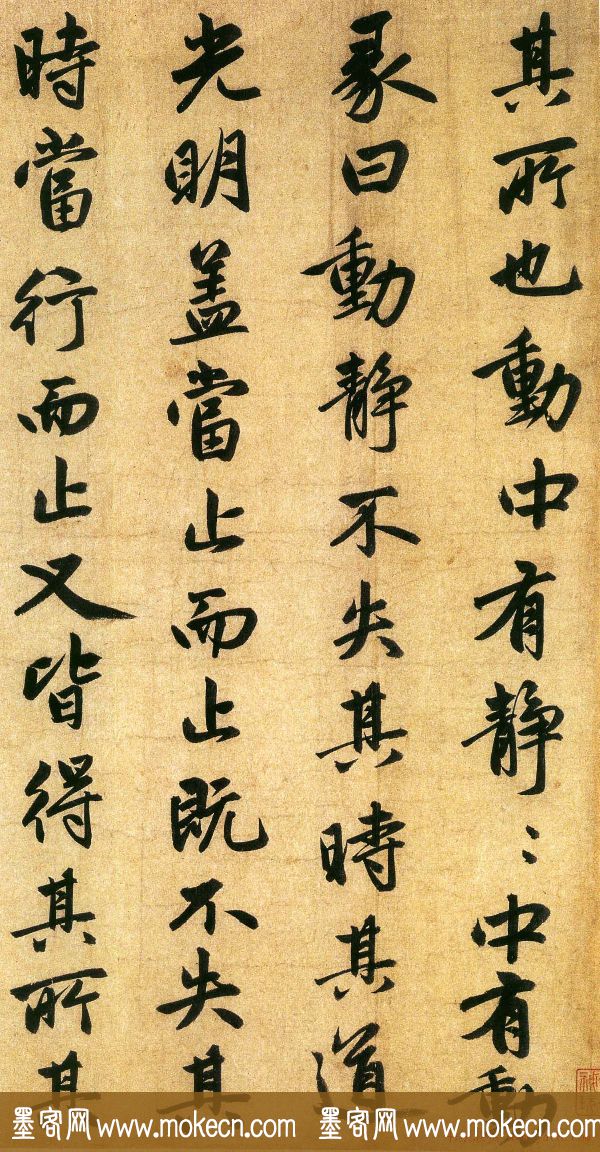 其所也動中有静〻中有動
彖曰動静不失其時其道
光明盖當止而止既不失其
時當行而止又皆得其所其
墨客网 www.mokecn.com 墨客网 www.mokecn.com